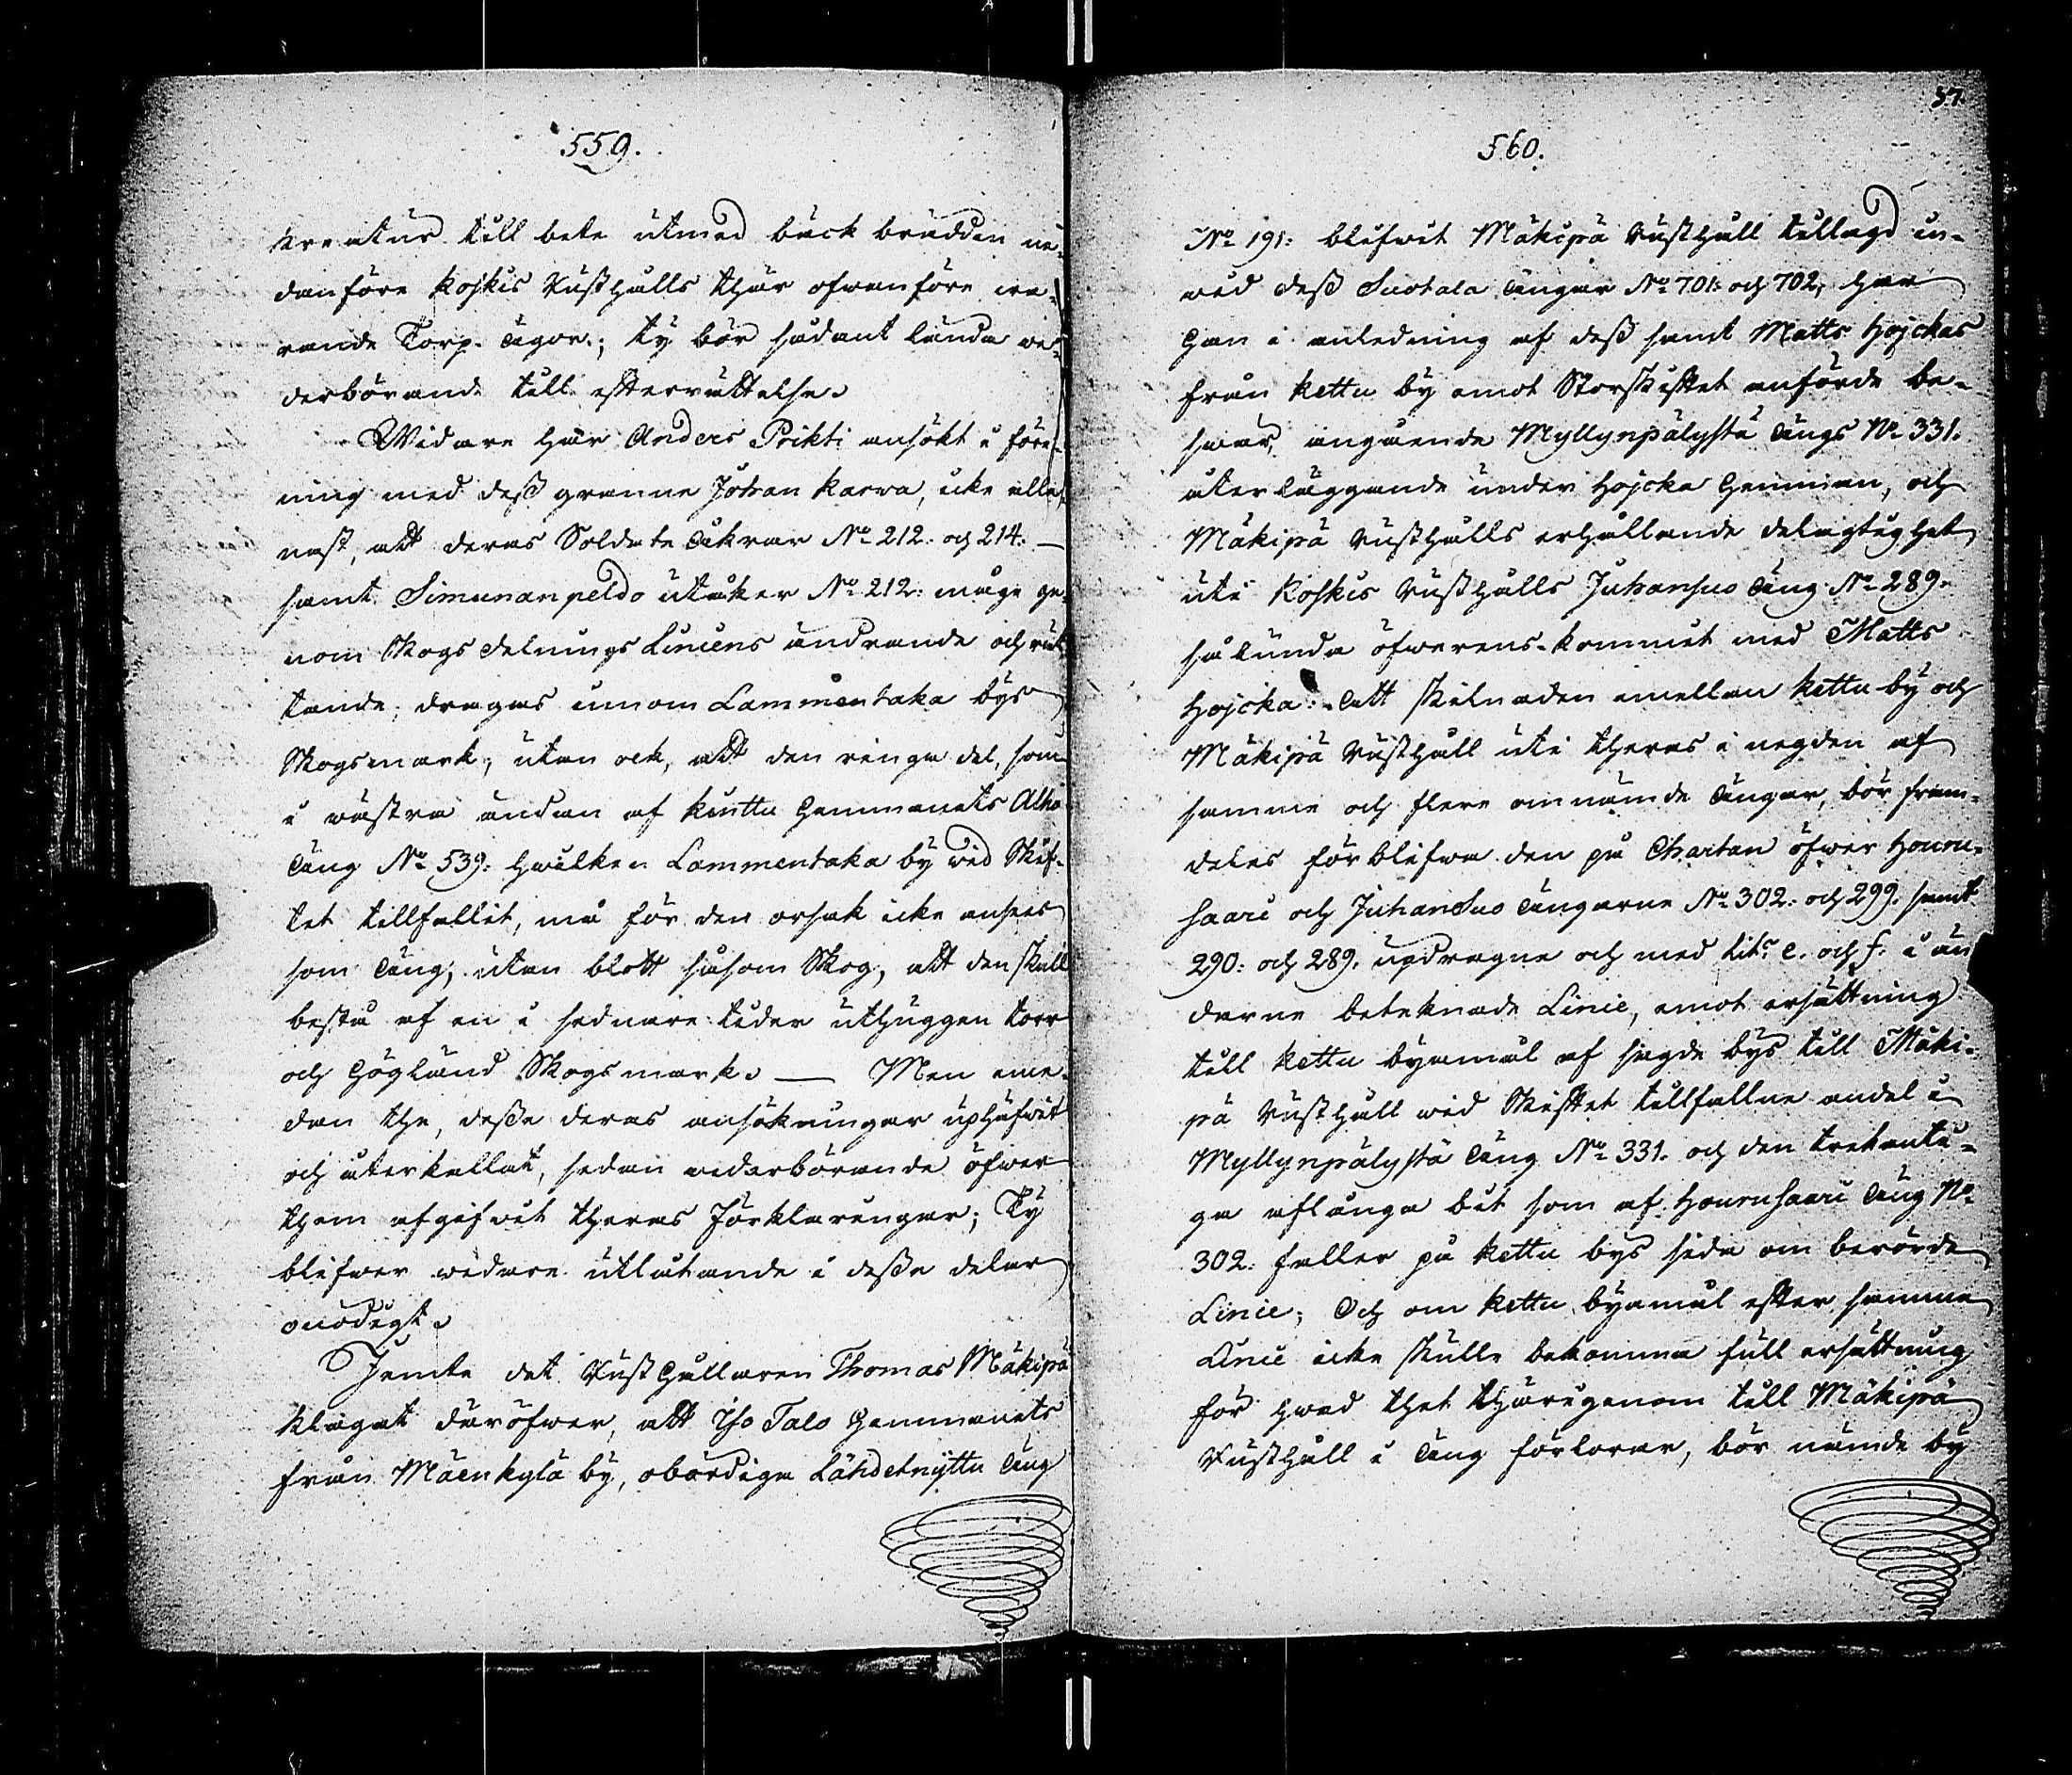 559.
kreatur till bete utmed bäck brädden ne-
danföre Koskis Rusthålls thär ofwanföre wa-
rande Torp-ägor; ty bör sådant lända we-
derbörande till efterrättelse.
Widare har Anders Prikti ansökt i före-
ning med deß granne Johan Karwa, icke alle-
nast, att deras Soldate åkrar No 212. och 214.
samt Simunanpeldo utåker No 212: måge ge-
nom Skogs delnings Liniens ändrande och rät-
tande, dragas innom Lammentaka bys
Skogsmark, utan ock, att den ringa del, som
i wästra ändan af Kinttu Hemmanets Alho
äng No 539: hwilken Lammentaka by wid Skif-
tet tillfallit, må för den orsak icke anses
som äng, utan blott såsom Skog, att den skall
bestå af en i sednare tider uthuggen torr
och högländ Skogsmark. — Men eme-
dan the, deße deras ansökningar uphäfwit
och återkallat, sedan wederbörande öfwer
them afgifwit theras förklaringar; Ty
blifwer widare utlåtande i deße delar
onödigt.
Jemte det Rusthållaren Thomas Mäkipä
klagat däröfwer, att Iso Talo Hemmanets
från Mäenkylä by, obördiga Lähdetnijttu äng
560.
57.
No 191: blifwit Mäkipä Rusthåll tillagd in-
wid deß Suotala ängar No 701: och 702, har
han i anledning af deß samt Matts Hojckas
från Kettu by emot Storskiftet anförde be-
swär, angående Myllynpälystä ängs No 331.
återläggande under Hojcka Hemman, och
Mäkipä Rusthålls erhållande delagtighet
uti Koskis Rusthålls Juhansuo äng No 289.
sålunda öfwerens-kommit med Matts
Hojcka: att skilnaden emellan Kettu by och
Mäkipä Rusthåll uti theras i negden af
samme och flere omnämde ängar, bör fram-
deles förblifwa den på Chartan öfwer Honon-
saari och Juhansuo ängarne No 302: och 299. samt
290: och 289. updragne och med Litr e. och f. i än
darne betecknade Linie, emot ersättning
till Kettu byamål af sagde bys till Mäki-
pä Rusthåll wid Skiftet tillfallne andel i
Myllynpälystä äng No 331. och den trekanti-
ga aflånga bit som af Hononsaari äng No
302: faller på Kettu bys sida om berörde
Linie; Och om Kettu byamål efter samma
Linie icke skulle bekomma full ersättning
för hwad thet thärigenom till Mäkipä
Rusthåll i äng förlorar, bör nämde by